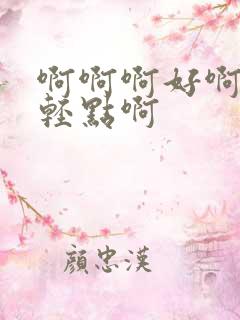 啊啊啊好啊
輕點啊
顏忠漢